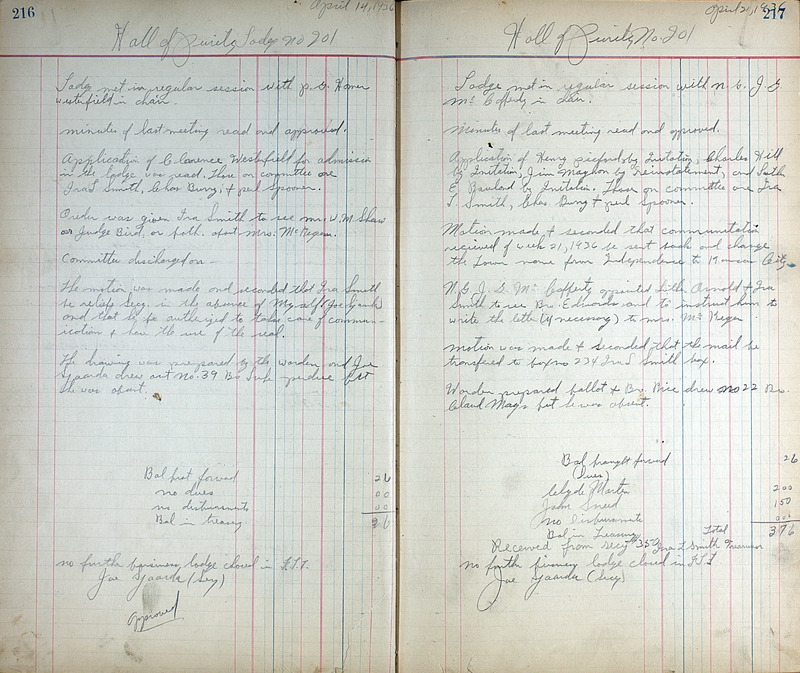 216
April 14, 1936
Hall of Purity Lodge No 201
Lodg met in regular session with P. G. Homer
Westerfield in chair.
minutes of last meeting read and approved.
Application of Clarence Westerfield for admission
in the lodge was read. Those on committee are
Ira S Smith, Chas Bung, + perl Spooner.
Order was given Ira Smith to see mr. W. M. Shaw
or Judge Bird, or both. about Mrs. McKegan.
Committee discharged on -
The motion was made and seconded that Ira Smith
be relief Secy. in the absence of Myself (Joe
and that he be authorized to take care of commun-
ication + have the use of the seal.
The drawing was prepared by the warden, and Joe
Gaarda drew out No. 39 Bro but
he was absent.
Bal brot forward 26
no dues 00
no disbursments 00
Bal in treasury 26
no further business lodge closed in F.L.T.
Joe Gaarda (Secy)
approved
217
April 21, 1936
Hall of Purity No. 201
Lodge met in regular session with N. G. J. G
Mc Cofferty in chair.
Minutes of last meeting read and approved.
Application of Henry by Initation, Charles Hill
by Initation, Jim by reinstatement, and Seth
E. by Initation. Those on committee are Ira
S. Smith, Chas Bung + perl Spooner.
Motion made + seconded that communication
recieved of week 21, 1936 be sent back and change
the town name from Independence to Kansas City.
N. G. J. G. Mc Cofferty appointed Luth Arnold + Ira
Smith to see Br. Edwards and to instruct him to
write the letter (if necessary) to mrs. McKegan
motion was made + seconded that the mail be
transfered to box no 234 Ira S Smith box.
Warden prepared ballot + Bro. Rice drew no 22 Bro.
Claud Mays but he was absent.
Bal brought forward 26
(Dues)
Clyde Martin 200
John Sneed 150
no Disbursments 000
Bal in Treasury Total 376
Received from secy $3.50 Ira S Smith Treasurer
no further business lodge closed in F.L.T
Joe Gaarda (Secy)